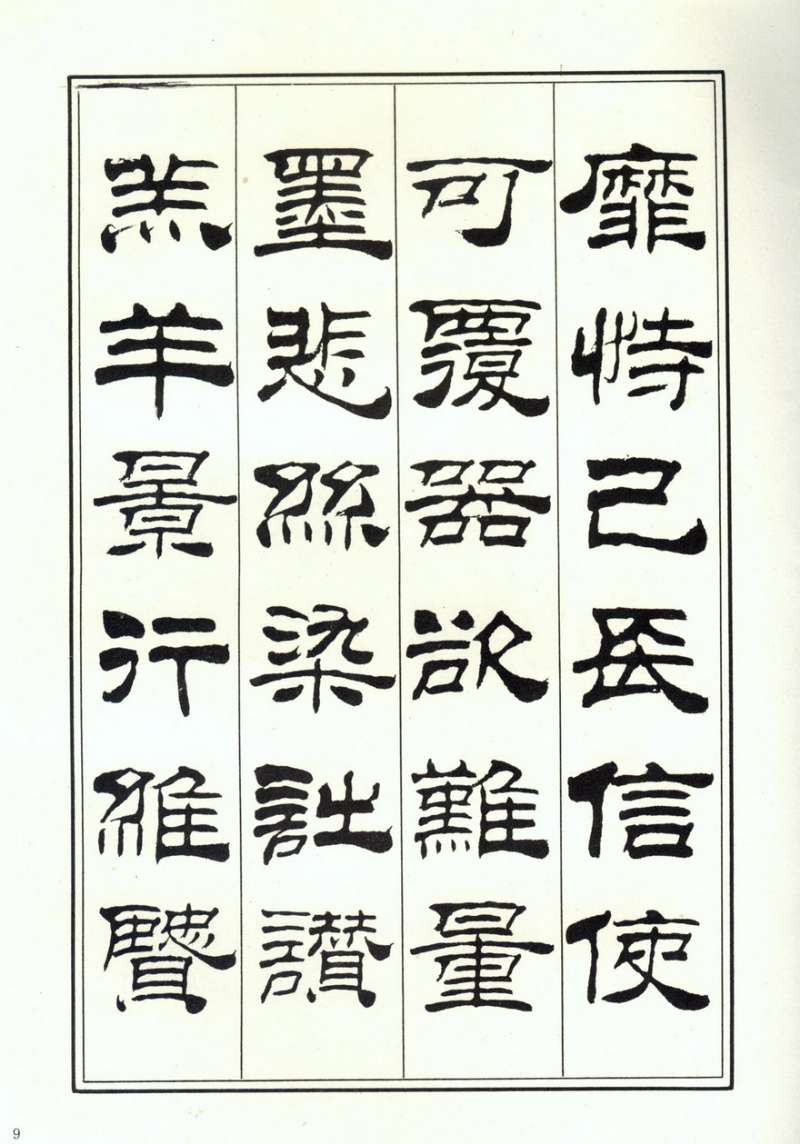 靡恃己長信使
可覆器欲難量
墨悲絲染詩讚
羔羊景行維贒
9